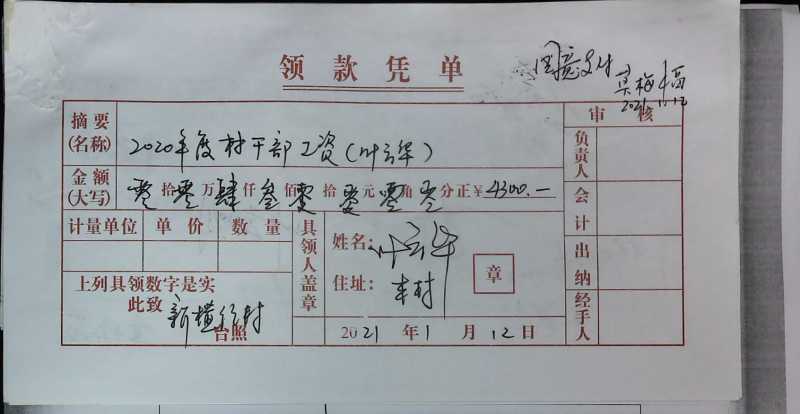 领款凭单
同意支付
吴梅福
2021.1.12
摘要(名称) 2020年度村干部工资(叶云华)
审核
金额(大写) 零拾零万肆仟叁佰零拾零元零角零分正¥4300.—
负责人
计量单位 单价 数量
具领人盖章
姓名:叶云华
会计
上列具领数字是实
住址:本村
章
出纳
此致
新横行村
台照
2021年1月12日
经手人